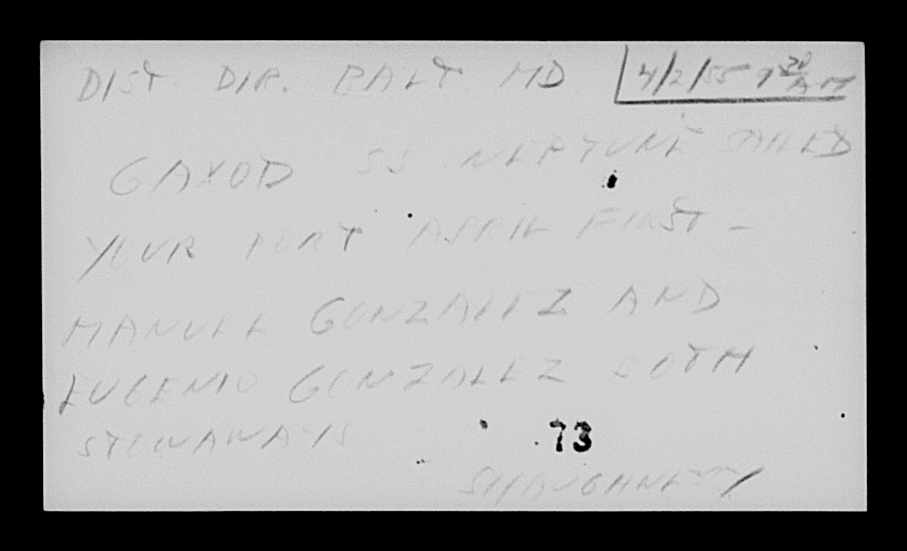 DIST. DIR. BALT MD 4/2/55 9 30 AM
GAXOD SS NEPTUNE SAILED
YOUR PORT APRIL FIRST -
MANUEL GONZALEZ AND
EUGENIO GONZALEZ BOTH
STOWAWAYS
73
SHAUGHNESSY